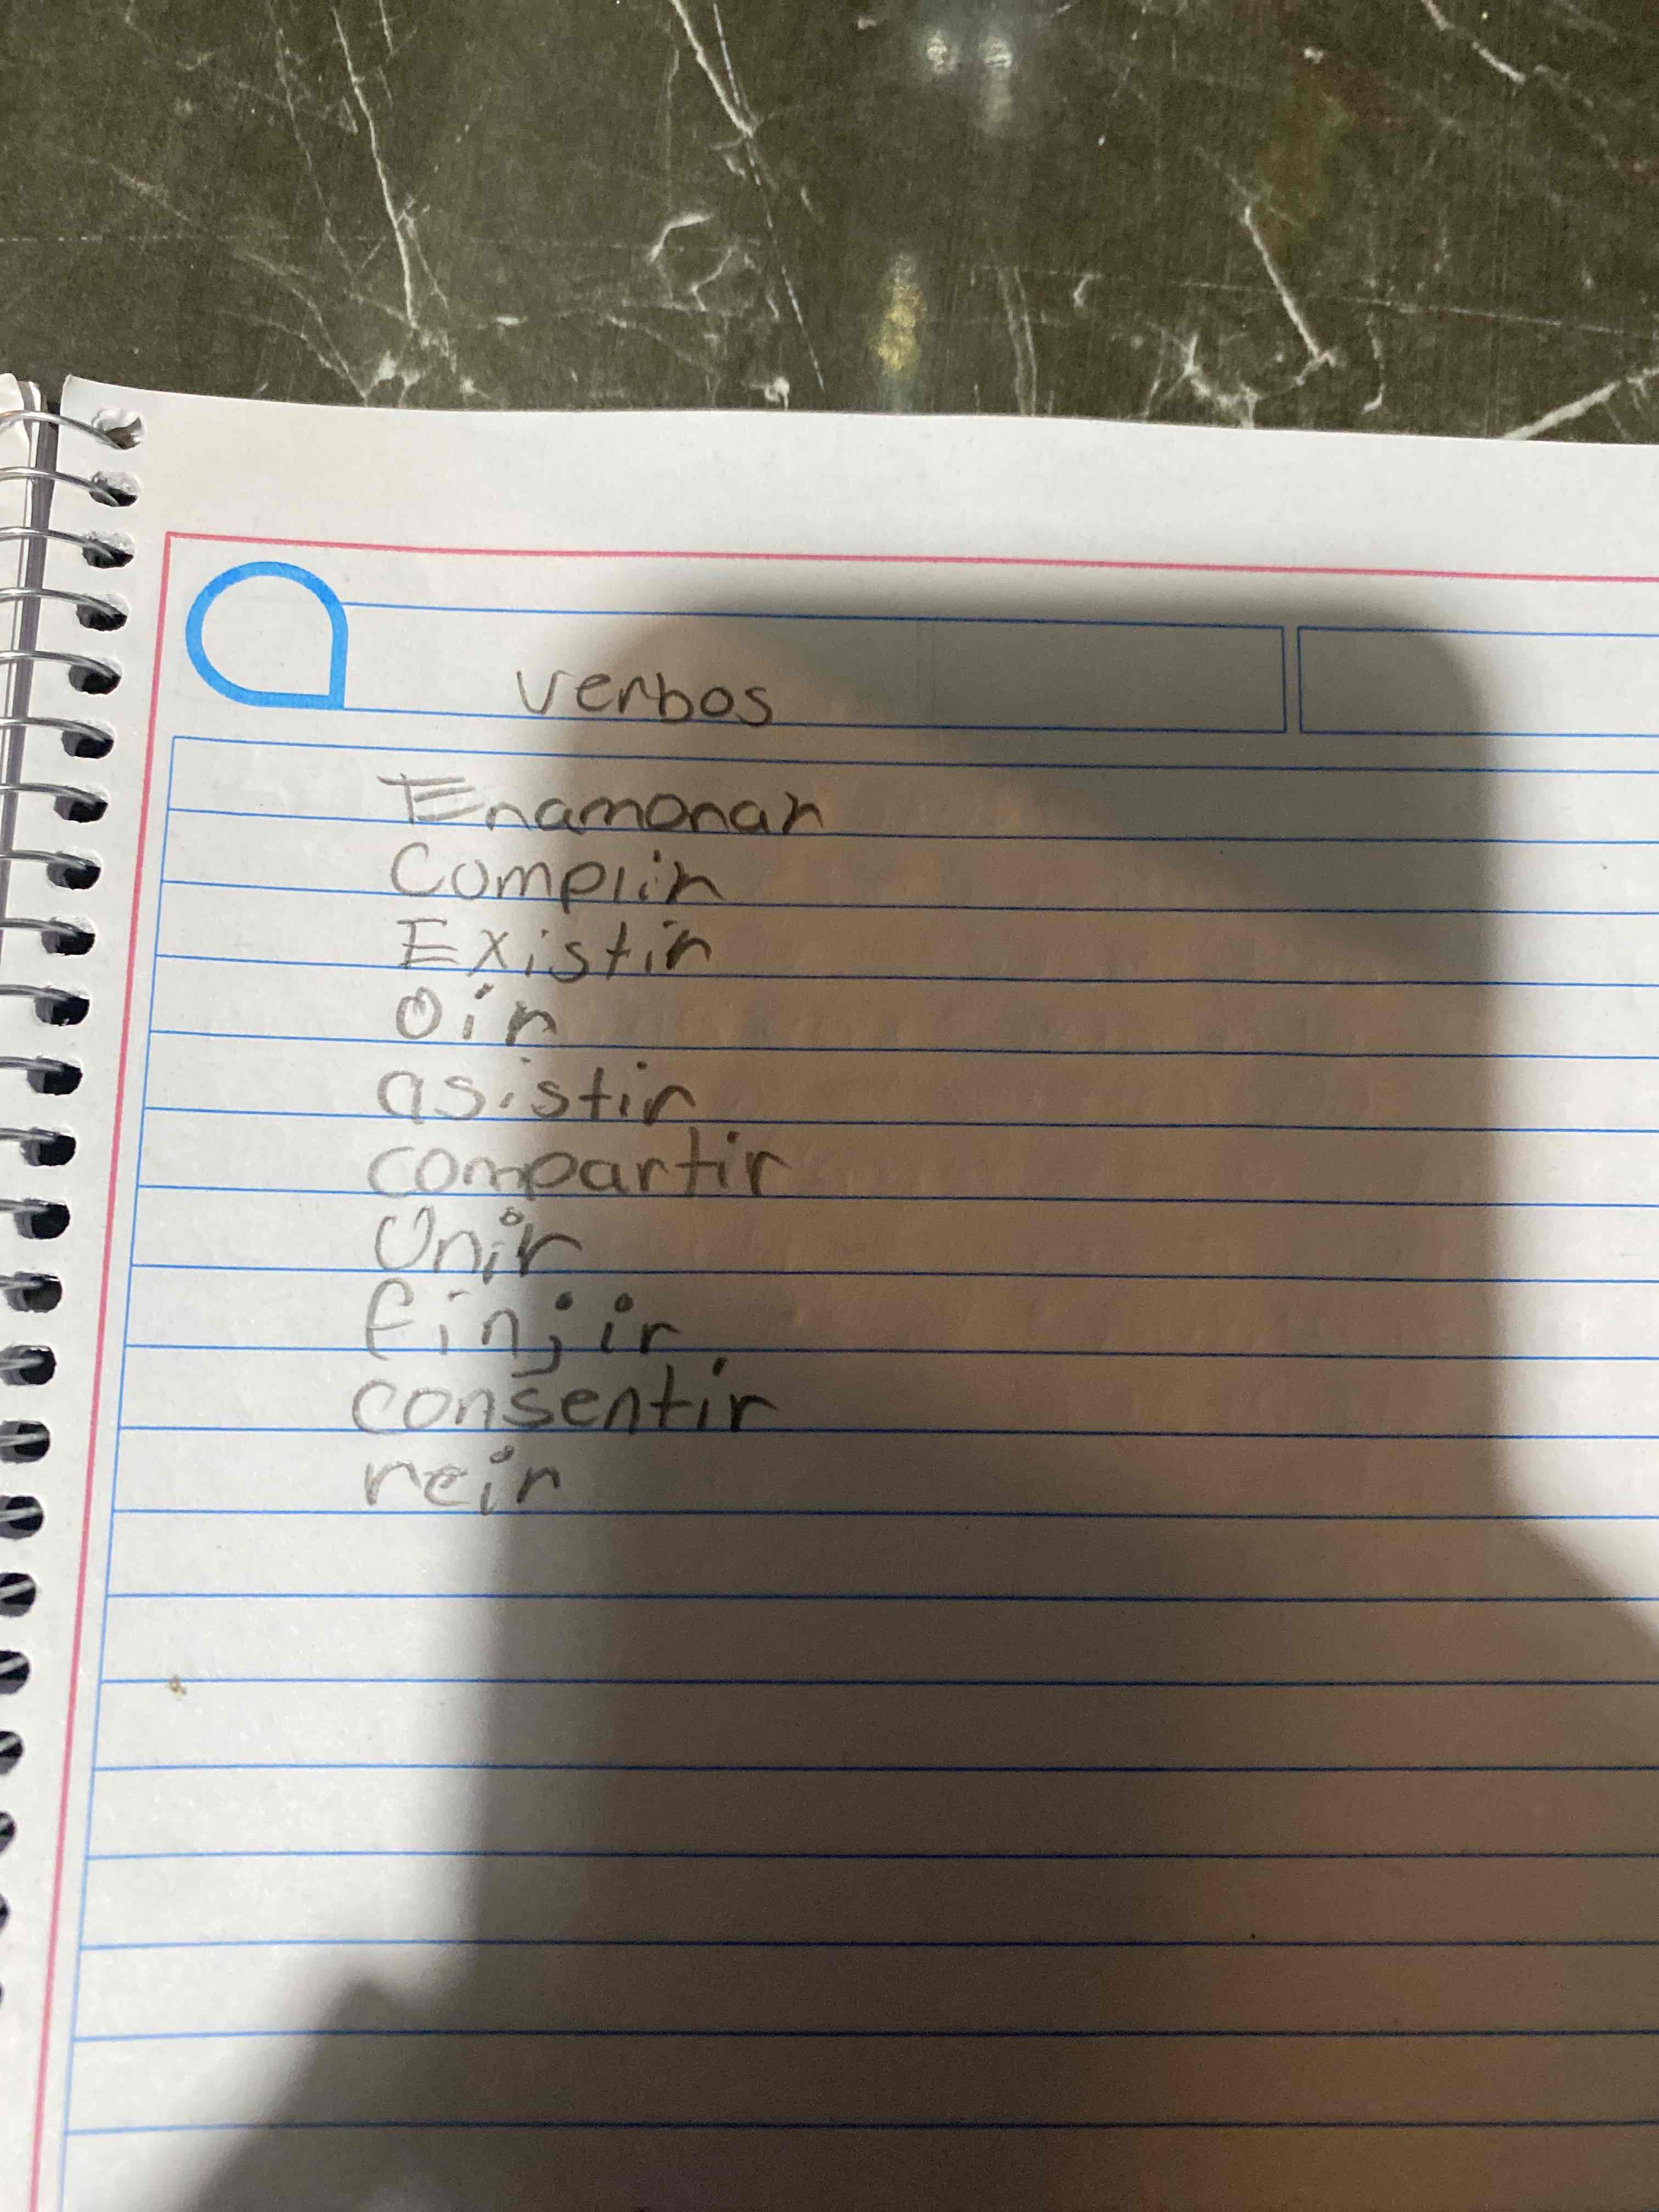 verbos
Enamorar
Cumplir
Existir
oir
asistir
compartir
Unir
finjir
consentir
reir